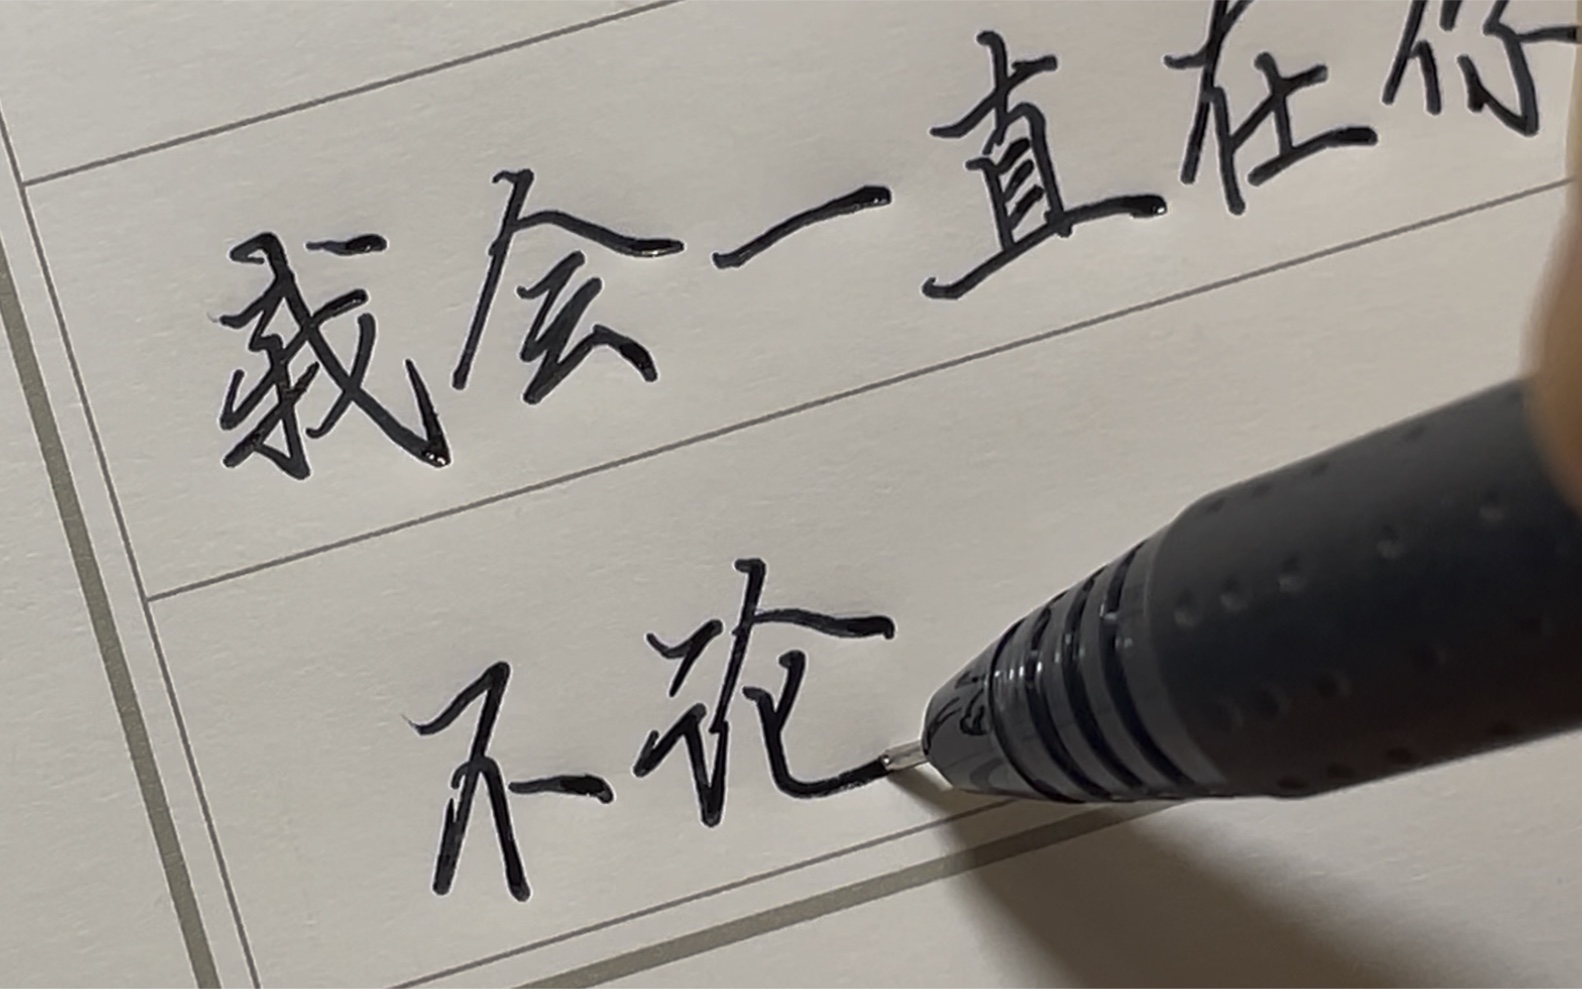 我会一直在你
不论